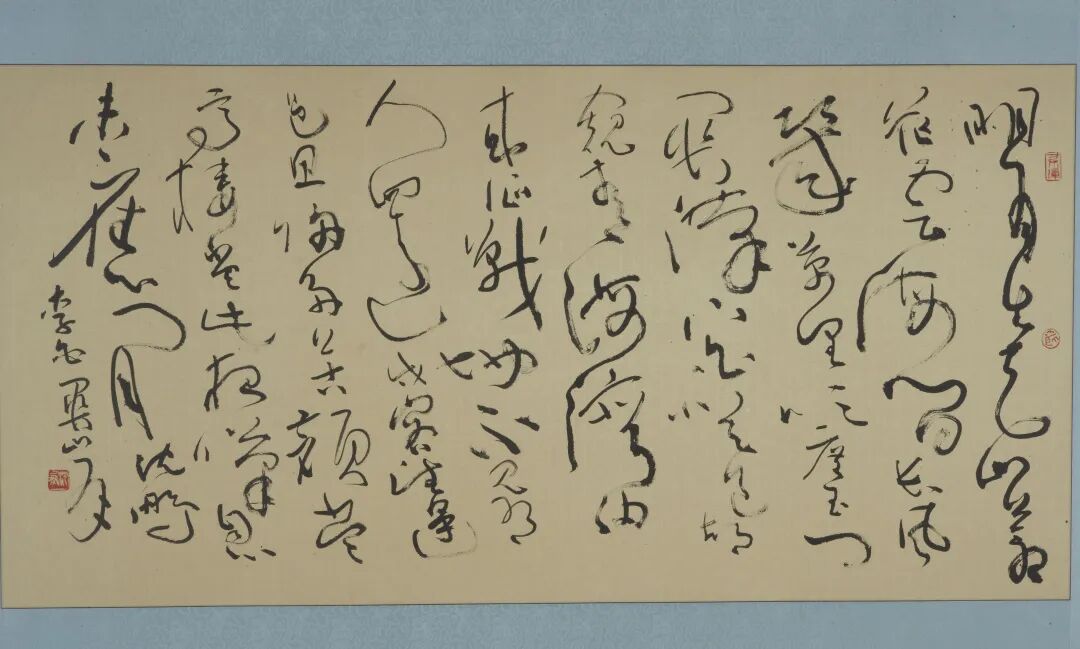 明月出天山蒼
茫雲海間長風
幾萬里吹度玉門
關漢下白登道胡
窺青海灣由
来征戰地不見有
人還戍客望邊
邑思歸多苦顏
高樓當此夜嘆息
未應閒
李白關山月
沈鵬